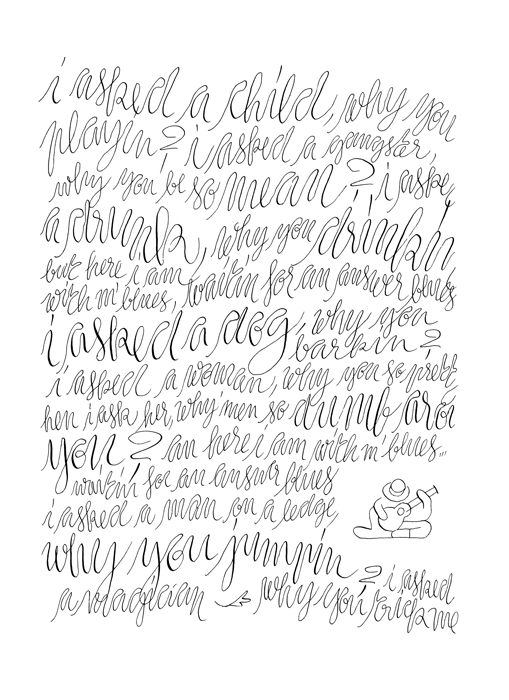 i asked a child, why you
playin? i asked a gangster,
why you be so mean? i aske
a drunk, why you drinkin
but here i am waitin for an answer blues
with m' blues,
i asked a dog, why you
barkin?
i asked a woman, why you so prett
hen i ask her, why men so dumb are
you? an here i am with m' blues...
waitin' for an answr blues
i asked a man on a ledge,
why you jumpin ? i asked
a magician why you trick me